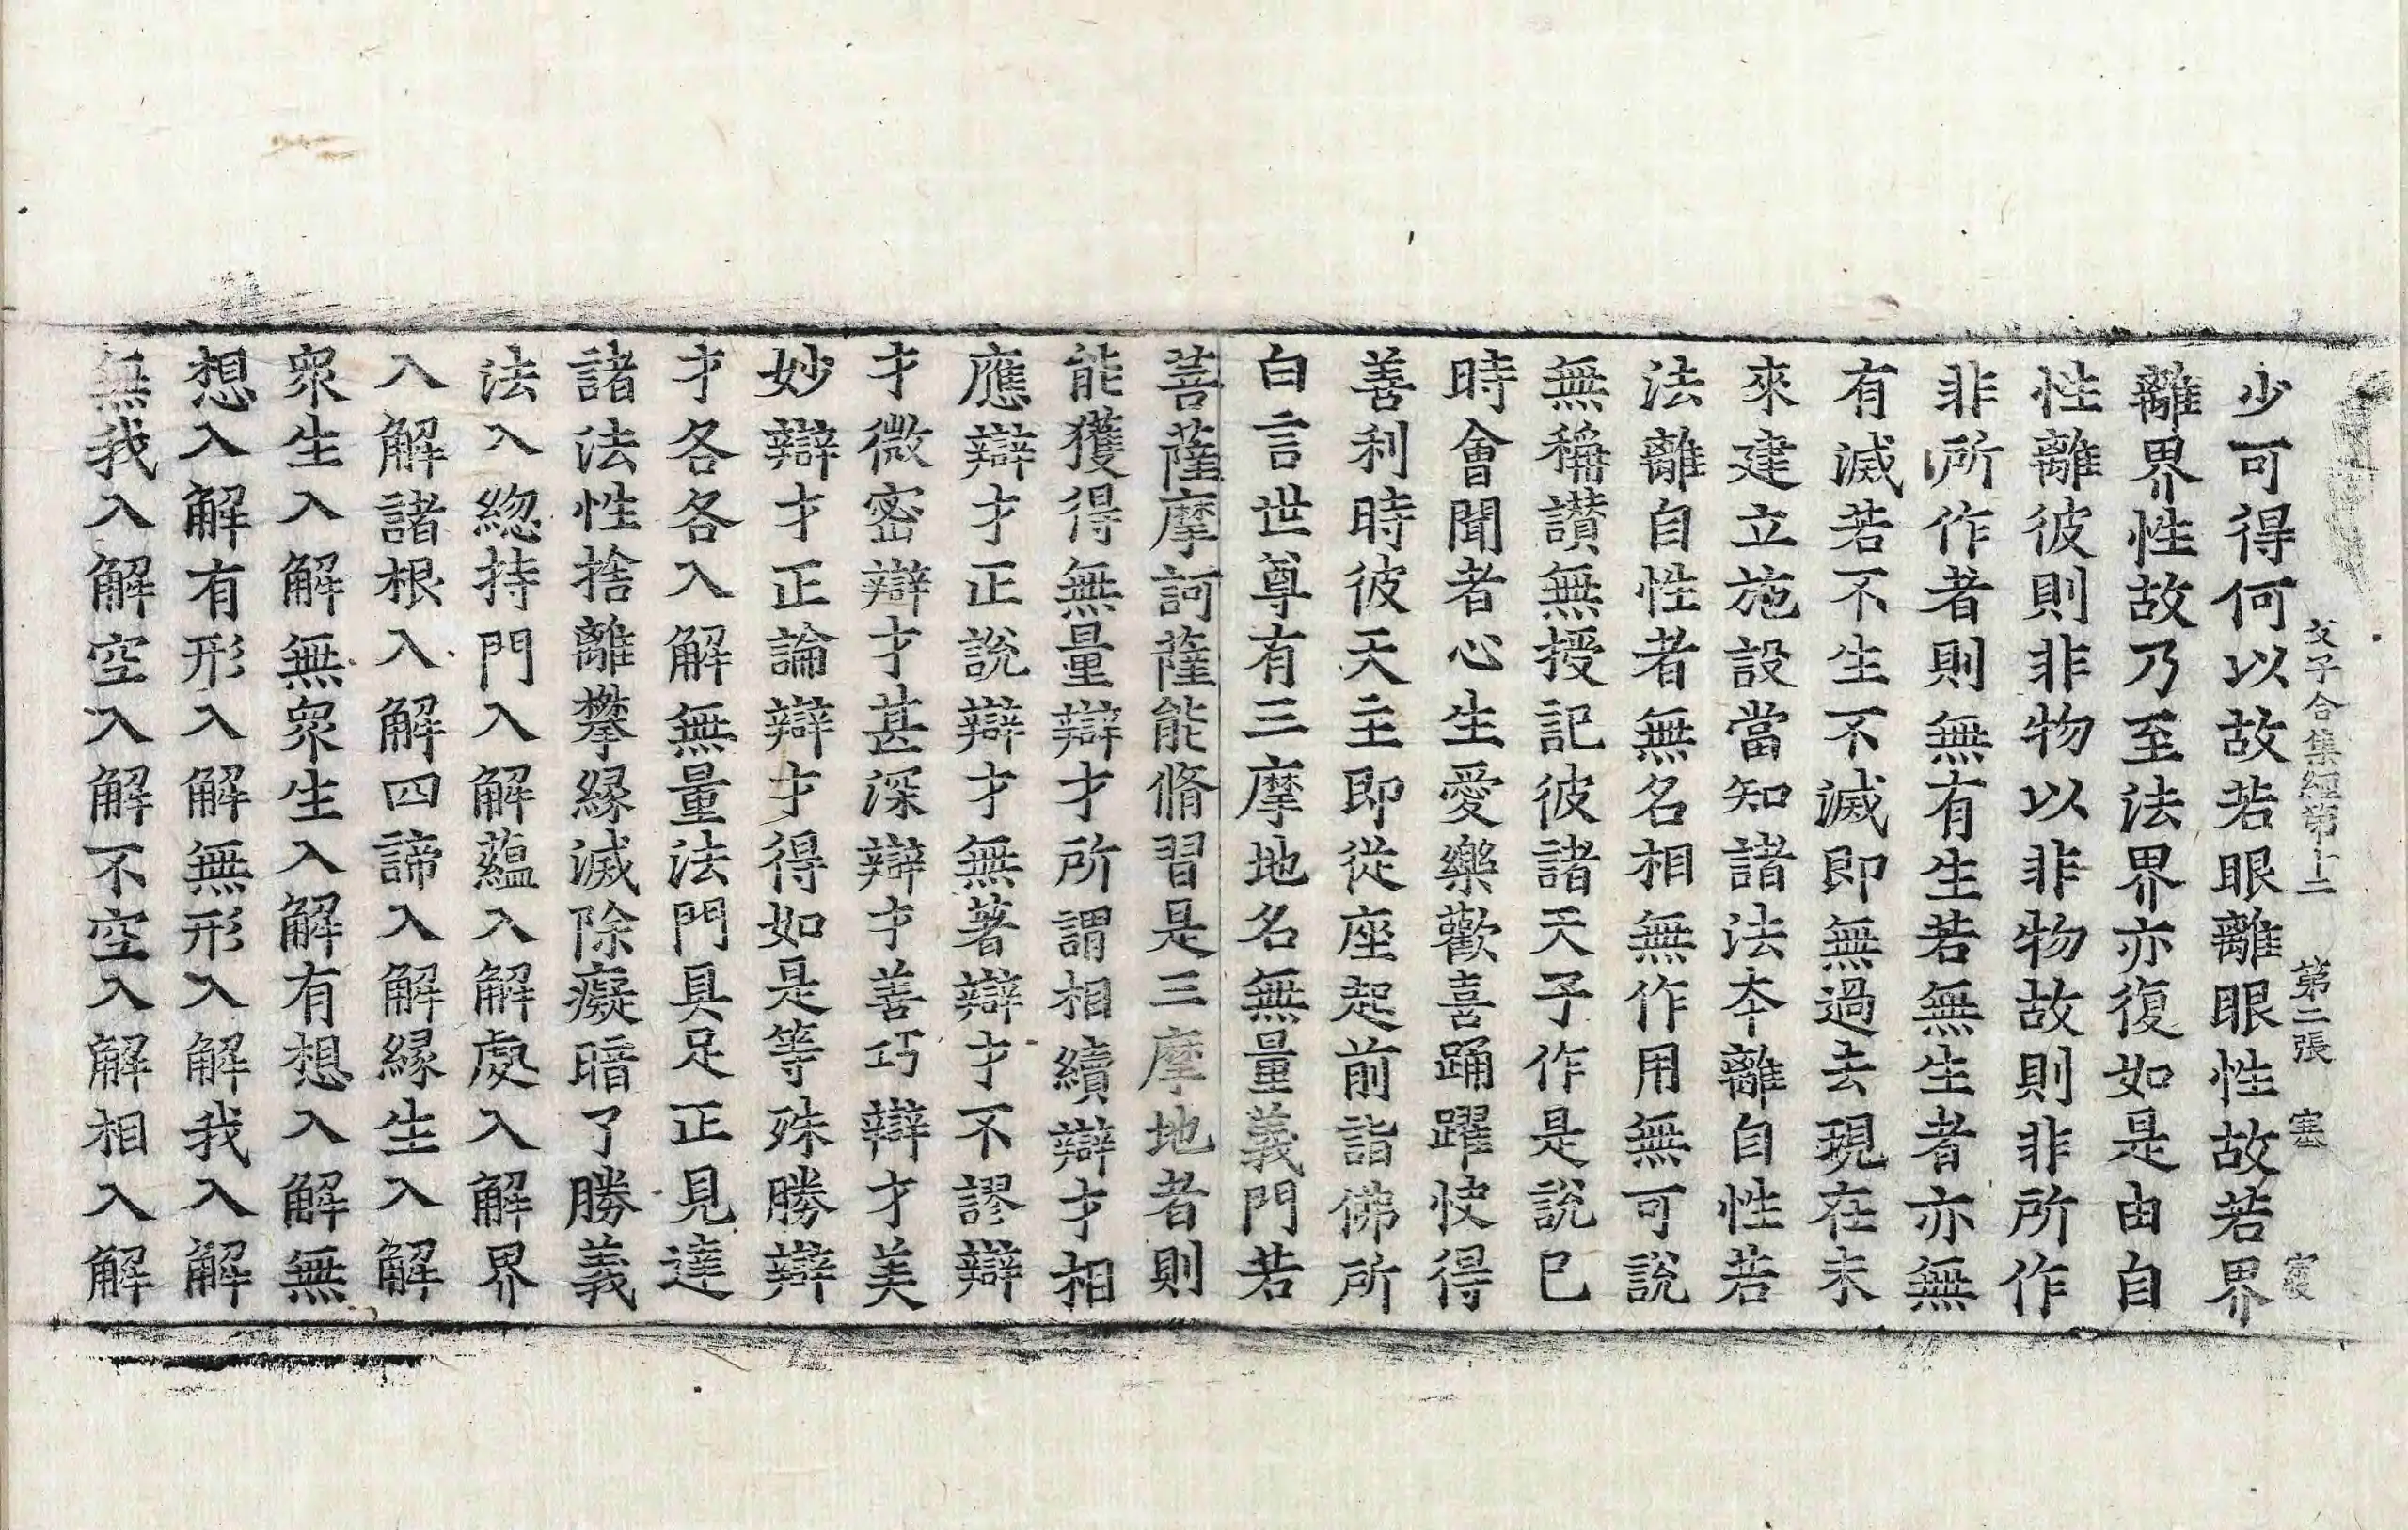 父子合集經第十二 第二張 塞
少可得何以故若眼離眼性故若界
離界性故乃至法界亦復如是由自
性離彼則非物以非物故則非所作
非所作者則無有生若無生者亦無
有滅若不生不滅即無過去現在未
來建立施設當知諸法本離自性若
法離自性者無名相無作用無可說
無稱讃無授記彼諸天子作是說已
時會聞者心生愛樂歡喜踊躍快得
善利時彼天主即從座起前詣佛所
白言世尊有三摩地名無量義門若
菩薩摩訶薩能脩習是三摩地者則
能獲得無量辯才所謂相續辯才相
應辯才正說辯才無著辯才不謬辯
才微密辯才甚深辯才善巧辯才美
妙辯才正論辯才得如是等殊勝辯
才各各入解無量法門具足正見達
諸法性捨離攀緣滅除癡暗了勝義
法入緫持門入解蘊入解處入解界
入解諸根入解四諦入解緣生入解
衆生入解無衆生入解有想入解無
想入解有形入解無形入解我入解
無我入解空入解不空入解相入解